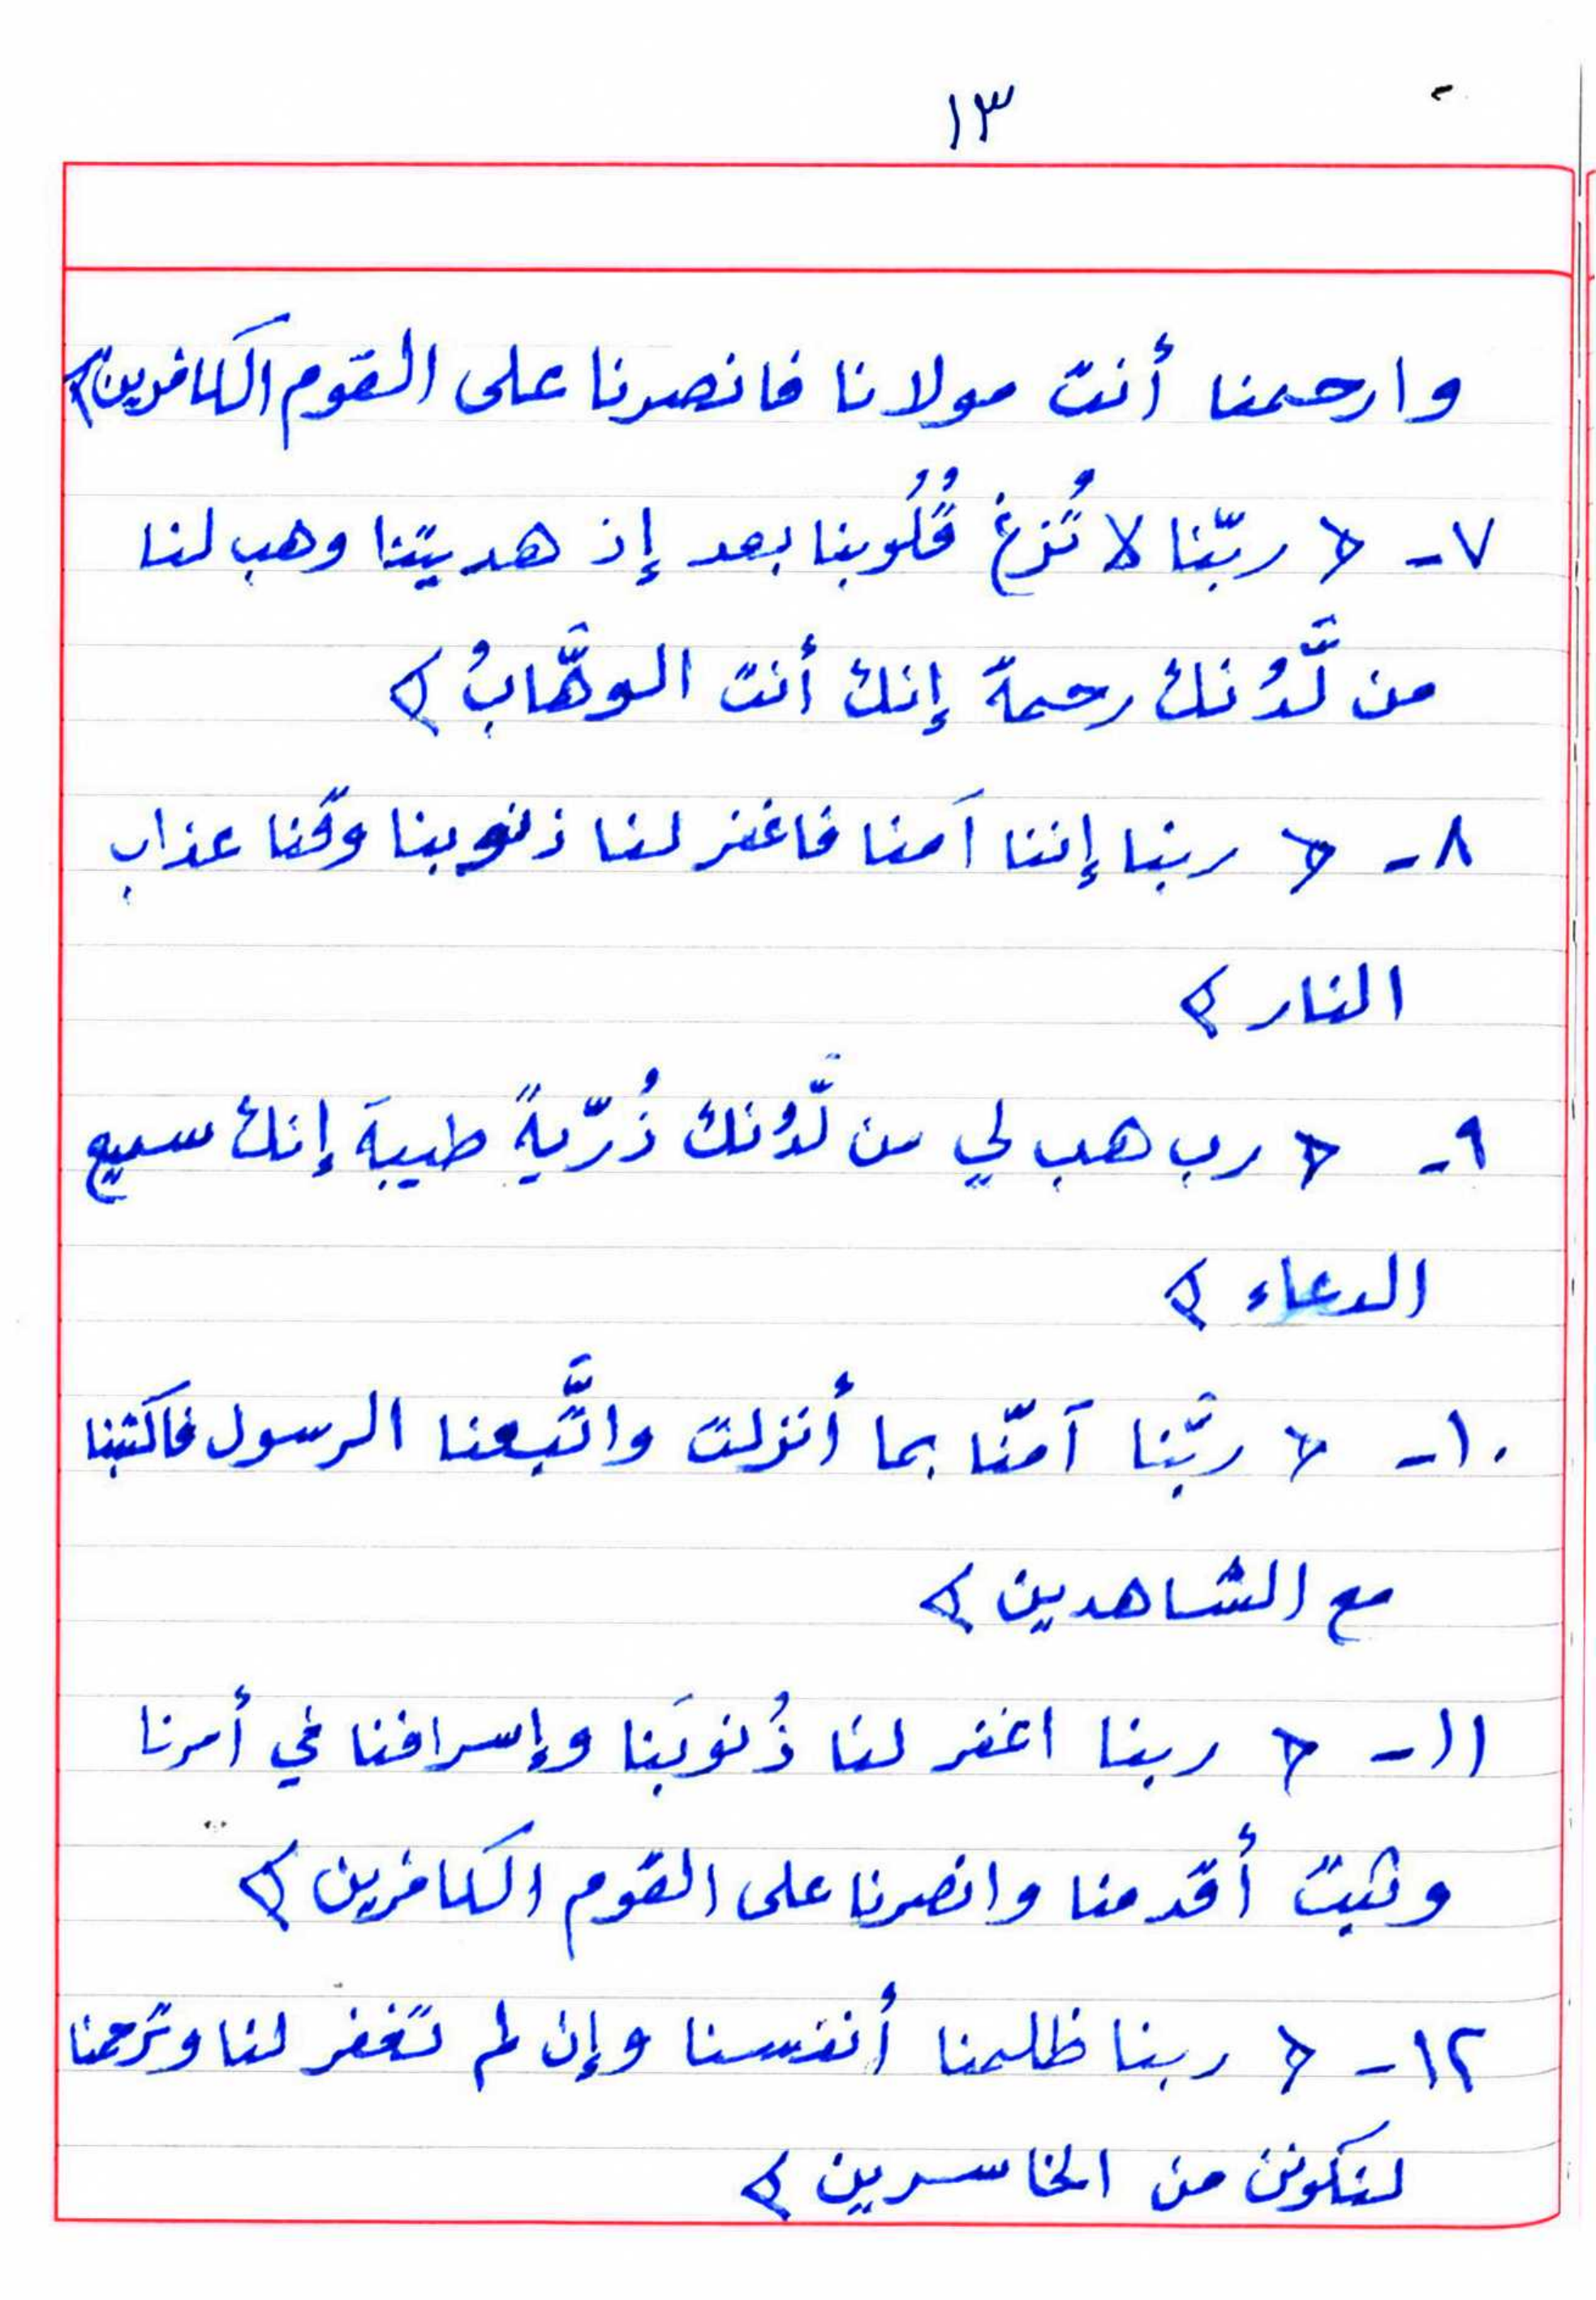 ١٣
وارحمنا أنت مولانا فانصرنا على القوم الكافرين﴾
٧- ﴿ ربّنا لا تُزغ قُلُوبنا بعد إذ هديتنا وهب لنا
من لَّدُنك رحمة إنك أنت الوهَّابُ ﴾
٨- ﴿ ربنا إننا آمنا فاغفر لنا ذنوبنا وقنا عذاب
النار ﴾
٩- ﴿ رب هب لي من لَّدُنك ذُرّيةً طيبةَ إنك سميع
الدعاء ﴾
١٠- ﴿ ربّنا آمنّا بما أنزلت واتَّبعنا الرسول فاكتبنا
مع الشاهدين ﴾
١١- ﴿ ربنا اغفر لنا ذُنوبَنا وإسرافنا في أمرنا
وثبت أقدمنا وانصرنا على القوم الكافرين ﴾
١٢- ﴿ ربنا ظلمنا أنفسنا وإن لم تغفر لنا وترحمنا
لنكونن من الخاسرين ﴾